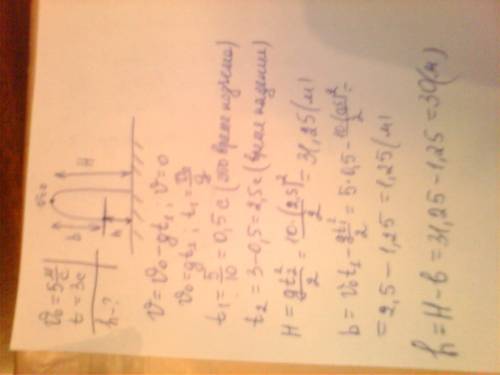 v₀ = 5 м/с
t = 3c
h - ?
v=0
H
b
h
v = v₀ - gt₁; v = 0
v₀ = gt₁; t₁ = v₀/g
t₁ = 5/10 = 0,5 c (это время подъема)
t₂ = 3 - 0,5 = 2,5 c (время падения)
H = gt₂²/2 = 10·(2,5)²/2 = 31,25 (м)
b = v₀t₁ - gt₁²/2 = 5·0,5 - 10·(0,5)²/2 =
= 2,5 - 1,25 = 1,25 (м)
h = H - b = 31,25 - 1,25 = 30 (м)